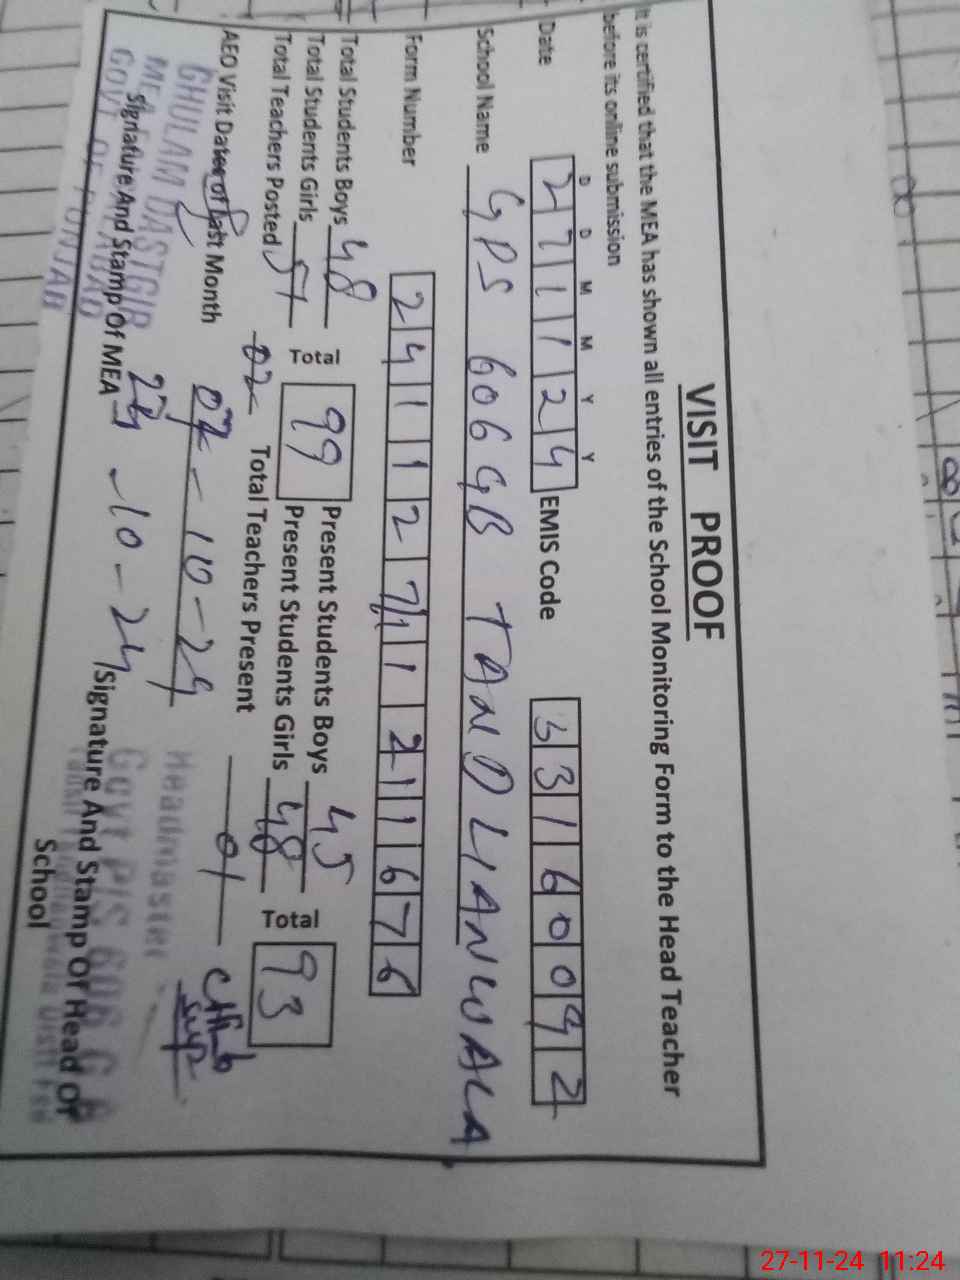 VISIT PROOF
It is certified that the MEA has shown all entries of the School Monitoring Form to the Head Teacher
before its online submission
D D M M Y Y
Date 271124 EMIS Code 33160092
School Name GPS 606 GB TANDLIANWALA
Form Number 2411271121 1676
Total Students Boys 48 Present Students Boys 45
Total Students Girls 51 Total 99 Present Students Girls 48 Total 93
Total Teachers Posted 02 Total Teachers Present 01
AEO Visit Dates of Last Month 07-10-24
GHULAM DASTGIR
MEA
GOVT OF PUNJAB
Signature And Stamp Of MEA 28-10-24 Signature And Stamp Of Head Of
School
Headmaster
Govt P/S 606 G B
27-11-24 11:24